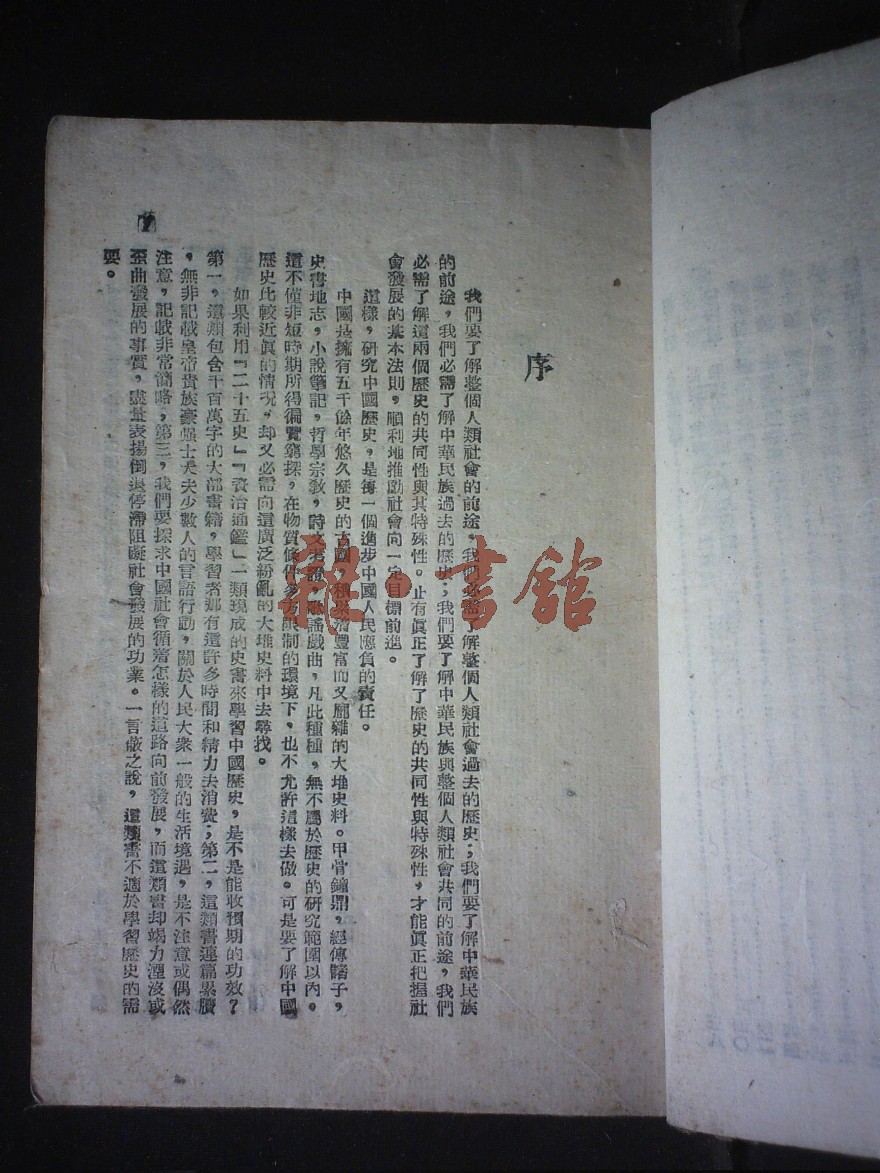 序
我們要了解整個人類社會的前途,我們必需了解整個人類社會過去的歷史;我們要了解中華民族
的前途,我們必需了解中華民族過去的歷史;我們要了解中華民族與整個人類社會共同的前途,我們
必需了解這兩個歷史的共同性與其特殊性。止有眞正了解了歷史的共同性與特殊性,才能眞正把握社
會發展的基本法則,順利地推動社會向一定目標前進。
這樣,研究中國歷史,是每一個進步中國人民應負的責任。
中國是擁有五千餘年悠久歷史的古國,積累着豐富而又龐雜的大堆史料。甲骨鐘鼎,經傳諸子,
史書地志,小說筆記,哲學宗教,詩文考證,歌謠戲曲,凡此種種,無不屬於歷史的研究範圍以內。
這不僅非短時期所得徧覽窮探,在物質條件多方限制的環境下,也不允許這樣去做。可是要了解中國
歷史比較近眞的情況,却又必需向這廣泛紛亂的大堆史料中去尋找。
如果利用『二十五史』『資治通鑑』一類現成的史書來學習中國歷史,是不是能收預期的功效?
第一,這類包含千百萬字的大部書籍,學習者那有這許多時間和精力去消費;第二,這類書連篇累牘
,無非記載皇帝貴族豪强士大夫少數人的言語行動,關於人民大衆一般的生活境遇,是不注意或偶然
注意,記載非常簡略;第三,我們要探求中國社會循着怎樣的道路向前發展,而這類書却竭力湮沒或
歪曲發展的事實,盡量表揚倒退停滯阻礙社會發展的功業。一言蔽之說,這類書不適於學習歷史的需
要。
書館